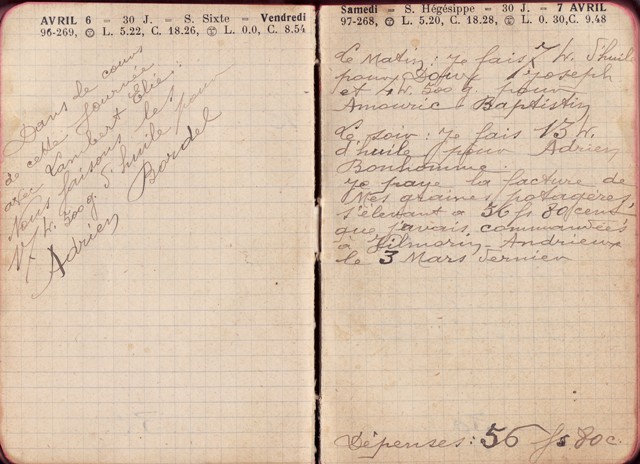 AVRIL 6 — 30 J. — S. Sixte — Vendredi
96-269, L. 5.22, C. 18.26, L. 0.0, C. 8.54
Dans le cours
de cette journée
avec Lambert Elie:
Nous faisons les
17 k. 500g. d'huile pour
Adrien Bordel
Samedi — S. Hégésippe — 30 J. — 7 AVRIL
97-268, L. 5.20, C. 18.28, L. 0.30, C. 9.48
Le Matin: Je fais 7 k. d'huile
pour Joseph
et 4 k. 500g. pour
Amouric Baptistin
Le soir: Je fais 13 k.
d'huile pour Adrien
Bonhomme.
Je paye la facture de
Mes graines potagères,
s'élevant à 56 fs 80 cent
que j'avais commandées
à Vilmorin-Andrieux
le 3 Mars dernier
Dépenses: 56 fs 80c